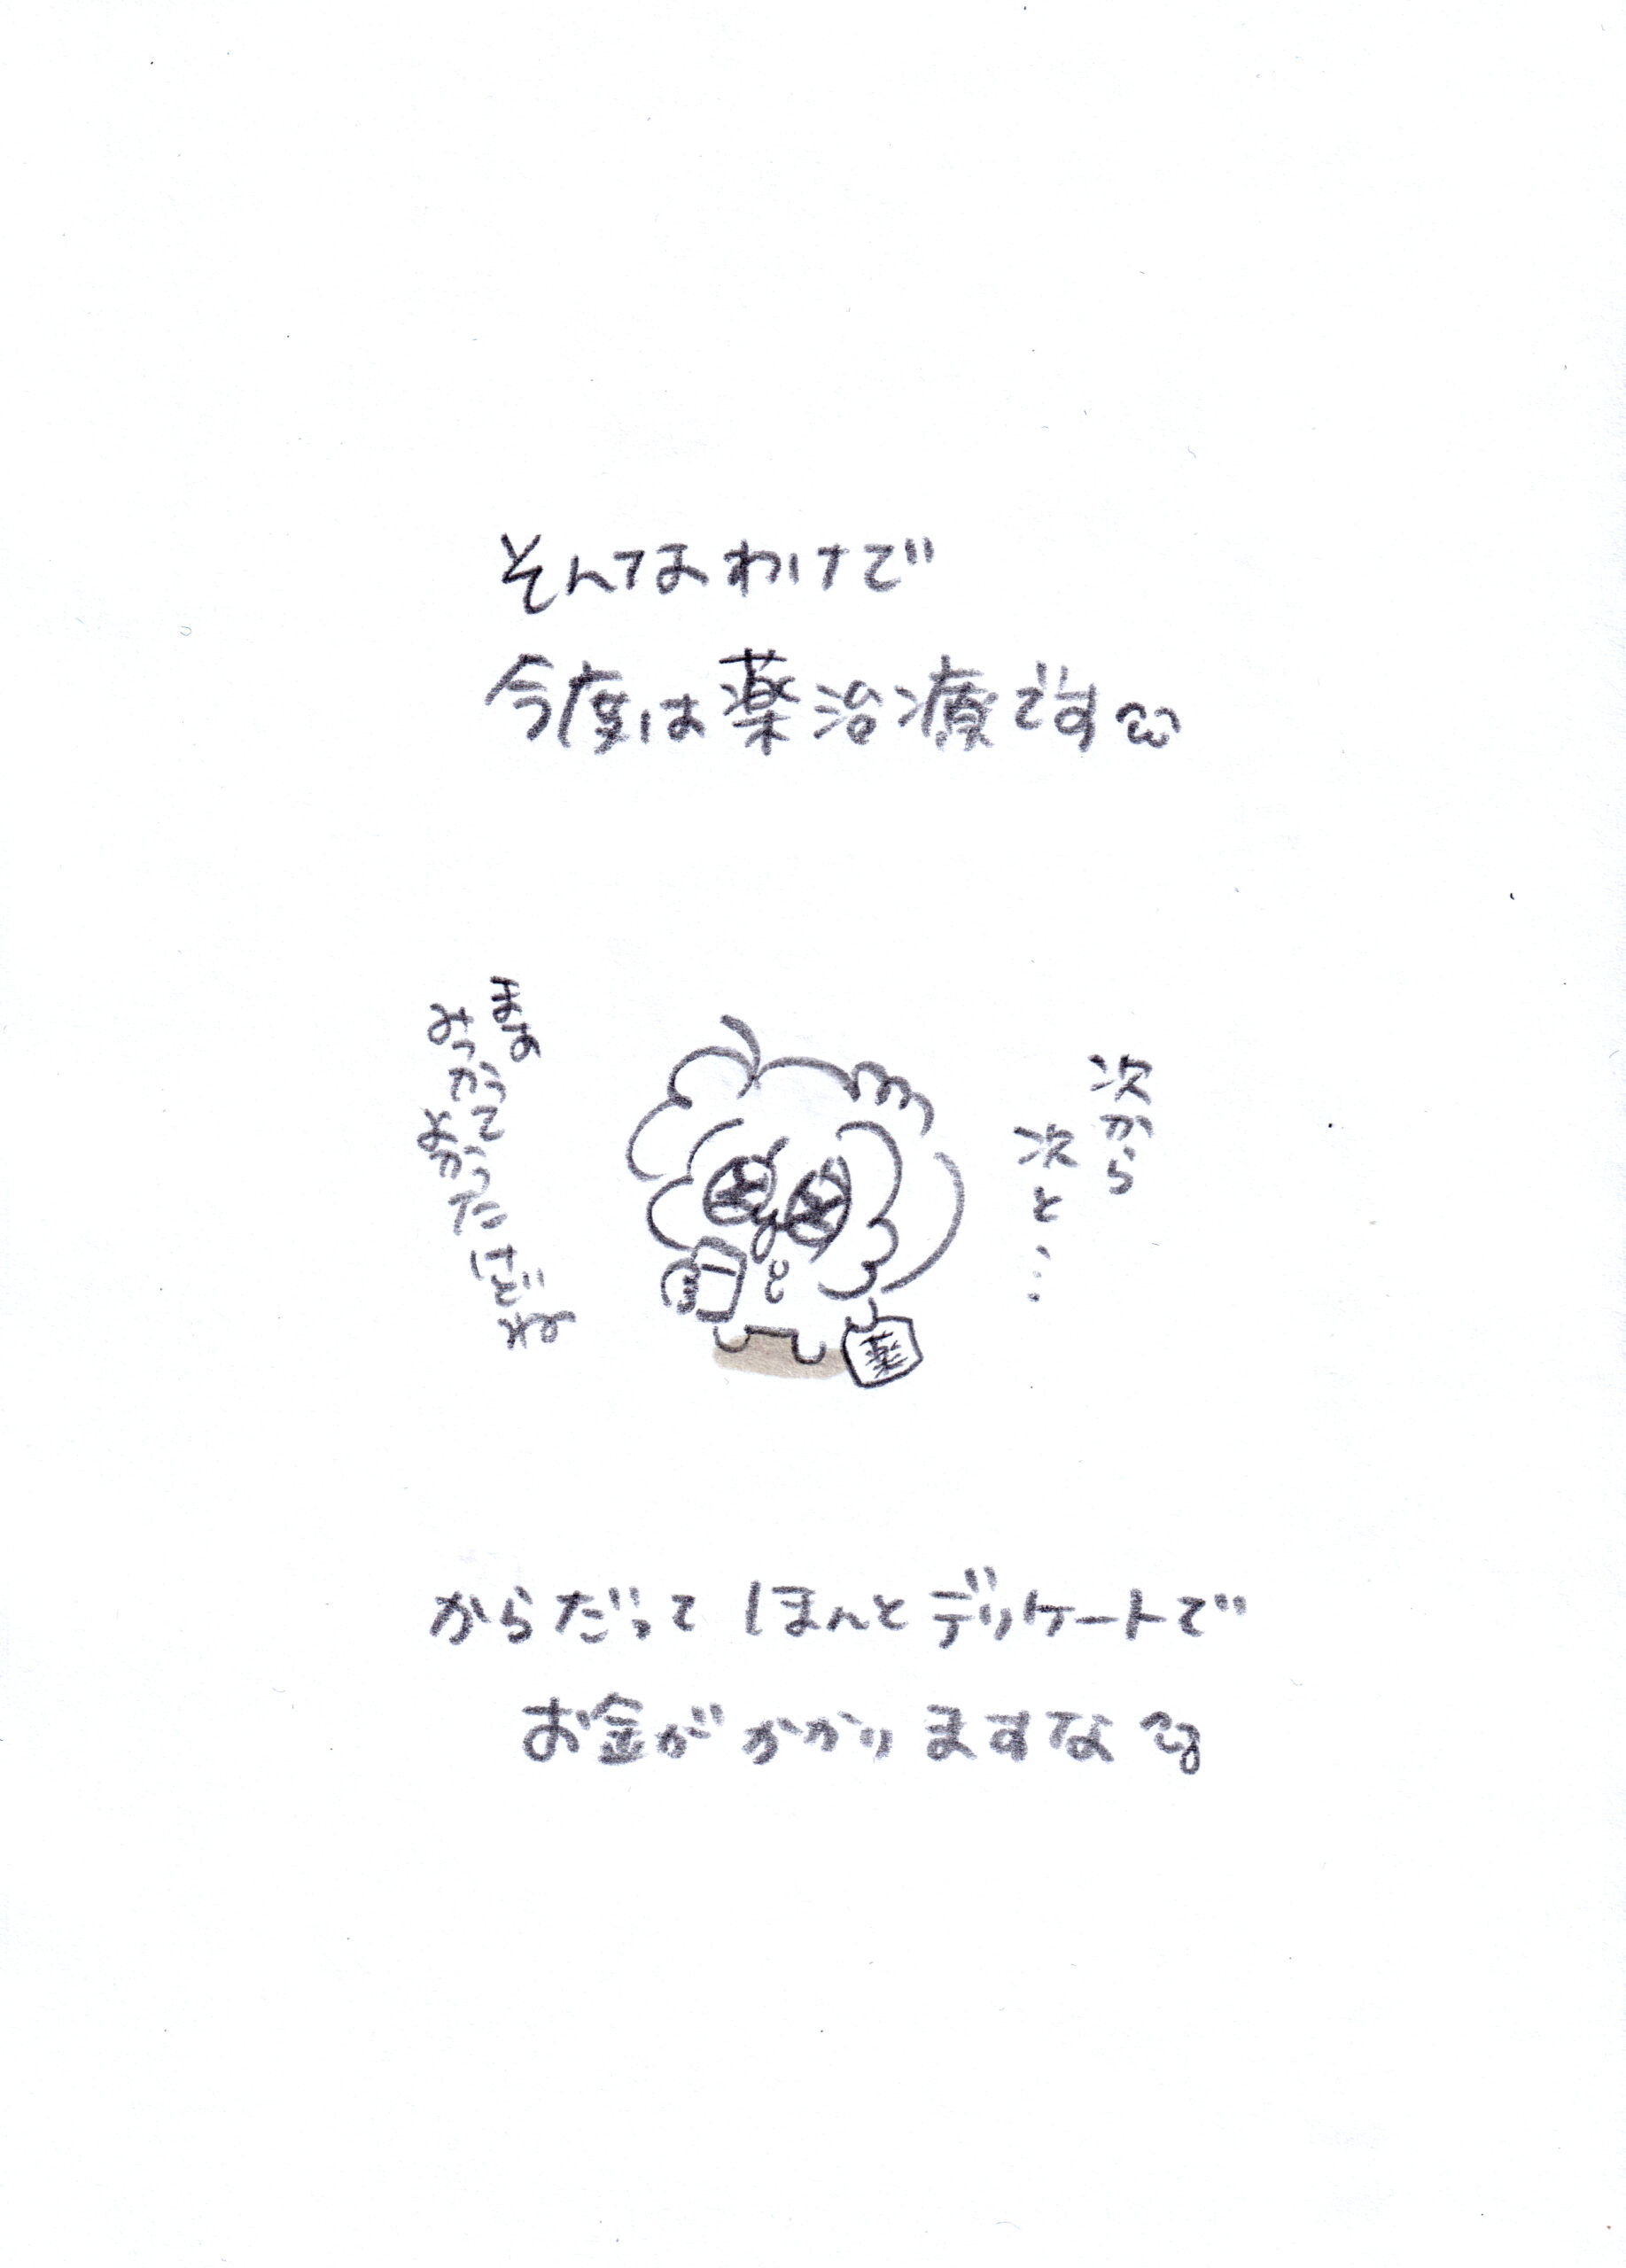 そんなわけで
今度は薬治療です
次から
次と…
まぁ
みつかって
よかった
けどね
薬
からだって ほんと デリケートで
お金が かかり ますな